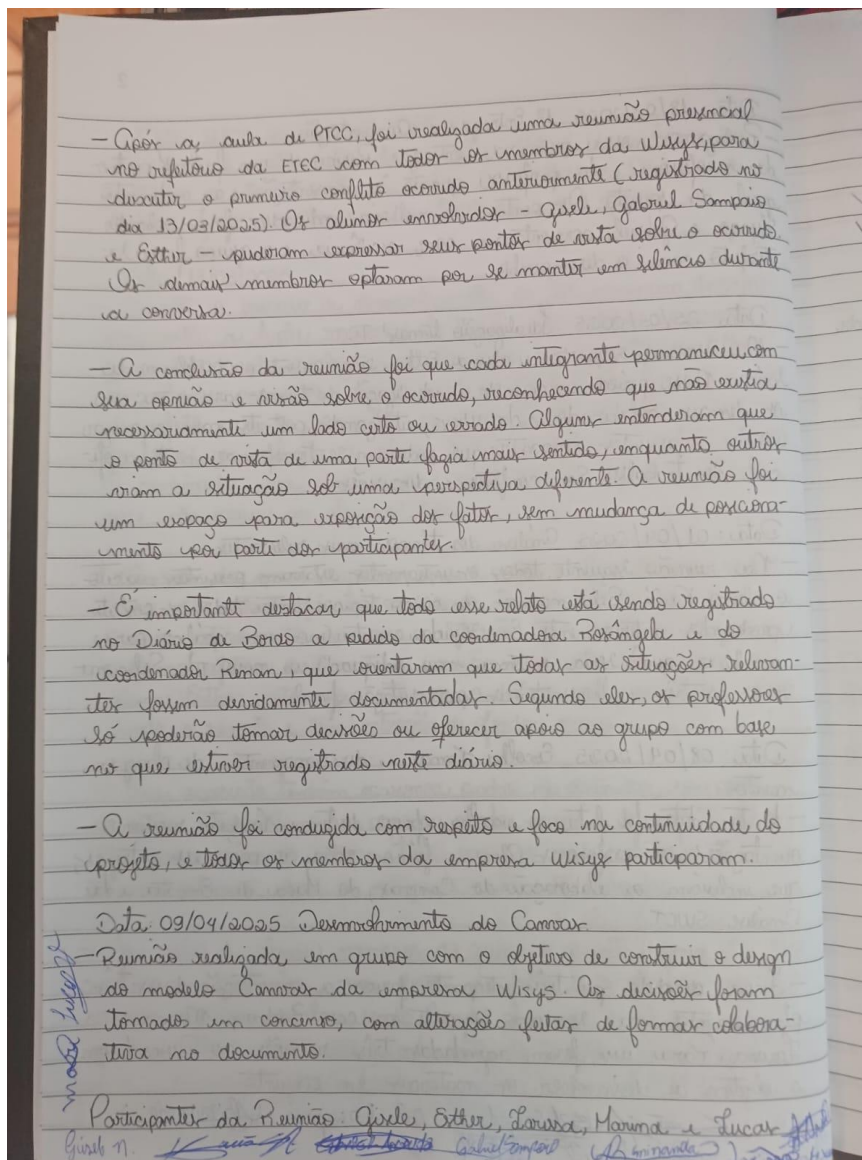 - Após a, aula de PTCC, foi realizada uma reunião presencial
no refeitório da ETEC com todos os membros da Wisys, para
discutir o primeiro conflito ocorrido anteriormente (registrado no
dia 13/03/2025). Os alunos envolvidos - Gisele, Gabriel Sampaio
e Esther - puderam expressar seus pontos de vista sobre o ocorrido
Os demais membros optaram por se manter em silêncio durante
a conversa.
- A conclusão da reunião foi que cada integrante permaneceu com
sua opinião e visão sobre o ocorrido, reconhecendo que não existia
necessariamente um lado certo ou errado. Alguns entenderam que
o ponto de vista de uma parte fazia mais sentido, enquanto outros
viam a situação sob uma perspectiva diferente. A reunião foi
um espaço para exposição dos fatos, sem mudança de posiciona-
mento por parte dos participantes.
- É importante destacar que todo esse relato está sendo registrado
no Diário de Bordo a pedido da coordenadora Rosângela e do
coordenador Renan, que orientaram que todas as situações relevan-
tes fossem devidamente documentadas. Segundo eles, os professores
só poderão tomar decisões ou oferecer apoio ao grupo com base
no que estiver registrado neste diário.
- A reunião foi conduzida com respeito e foco na continuidade do
projeto, e todos os membros da empresa Wisys participaram.
Data: 09/04/2025 Desenvolvimento do Canvas
- Reunião realizada em grupo com o objetivo de construir o design
do modelo Canvas da empresa Wisys. As decisões foram
tomadas em concenso, com alterações feitas de formas colabora-
tiva no documento.
Participantes da Reunião: Gisele, Esther, Larissa, Marina e Lucas
Gisele n. Gabriel Sampaio